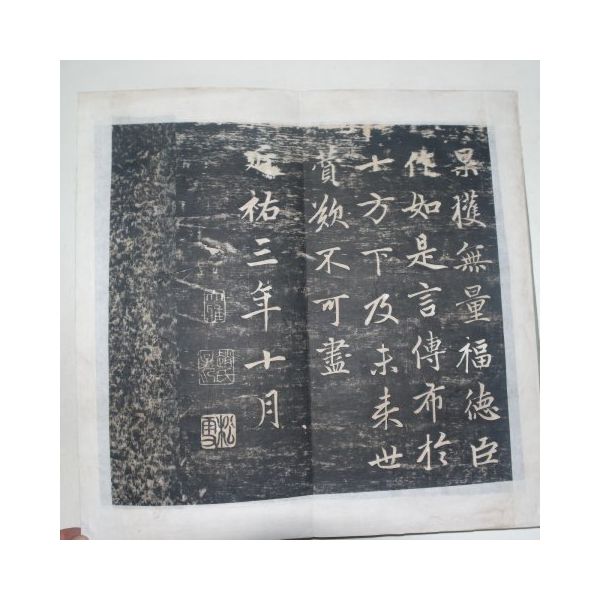 果獲無量福德臣
作如是言傳布於
十方下及未来世
賛歎不可盡
延祐三年十月
趙氏
松雪